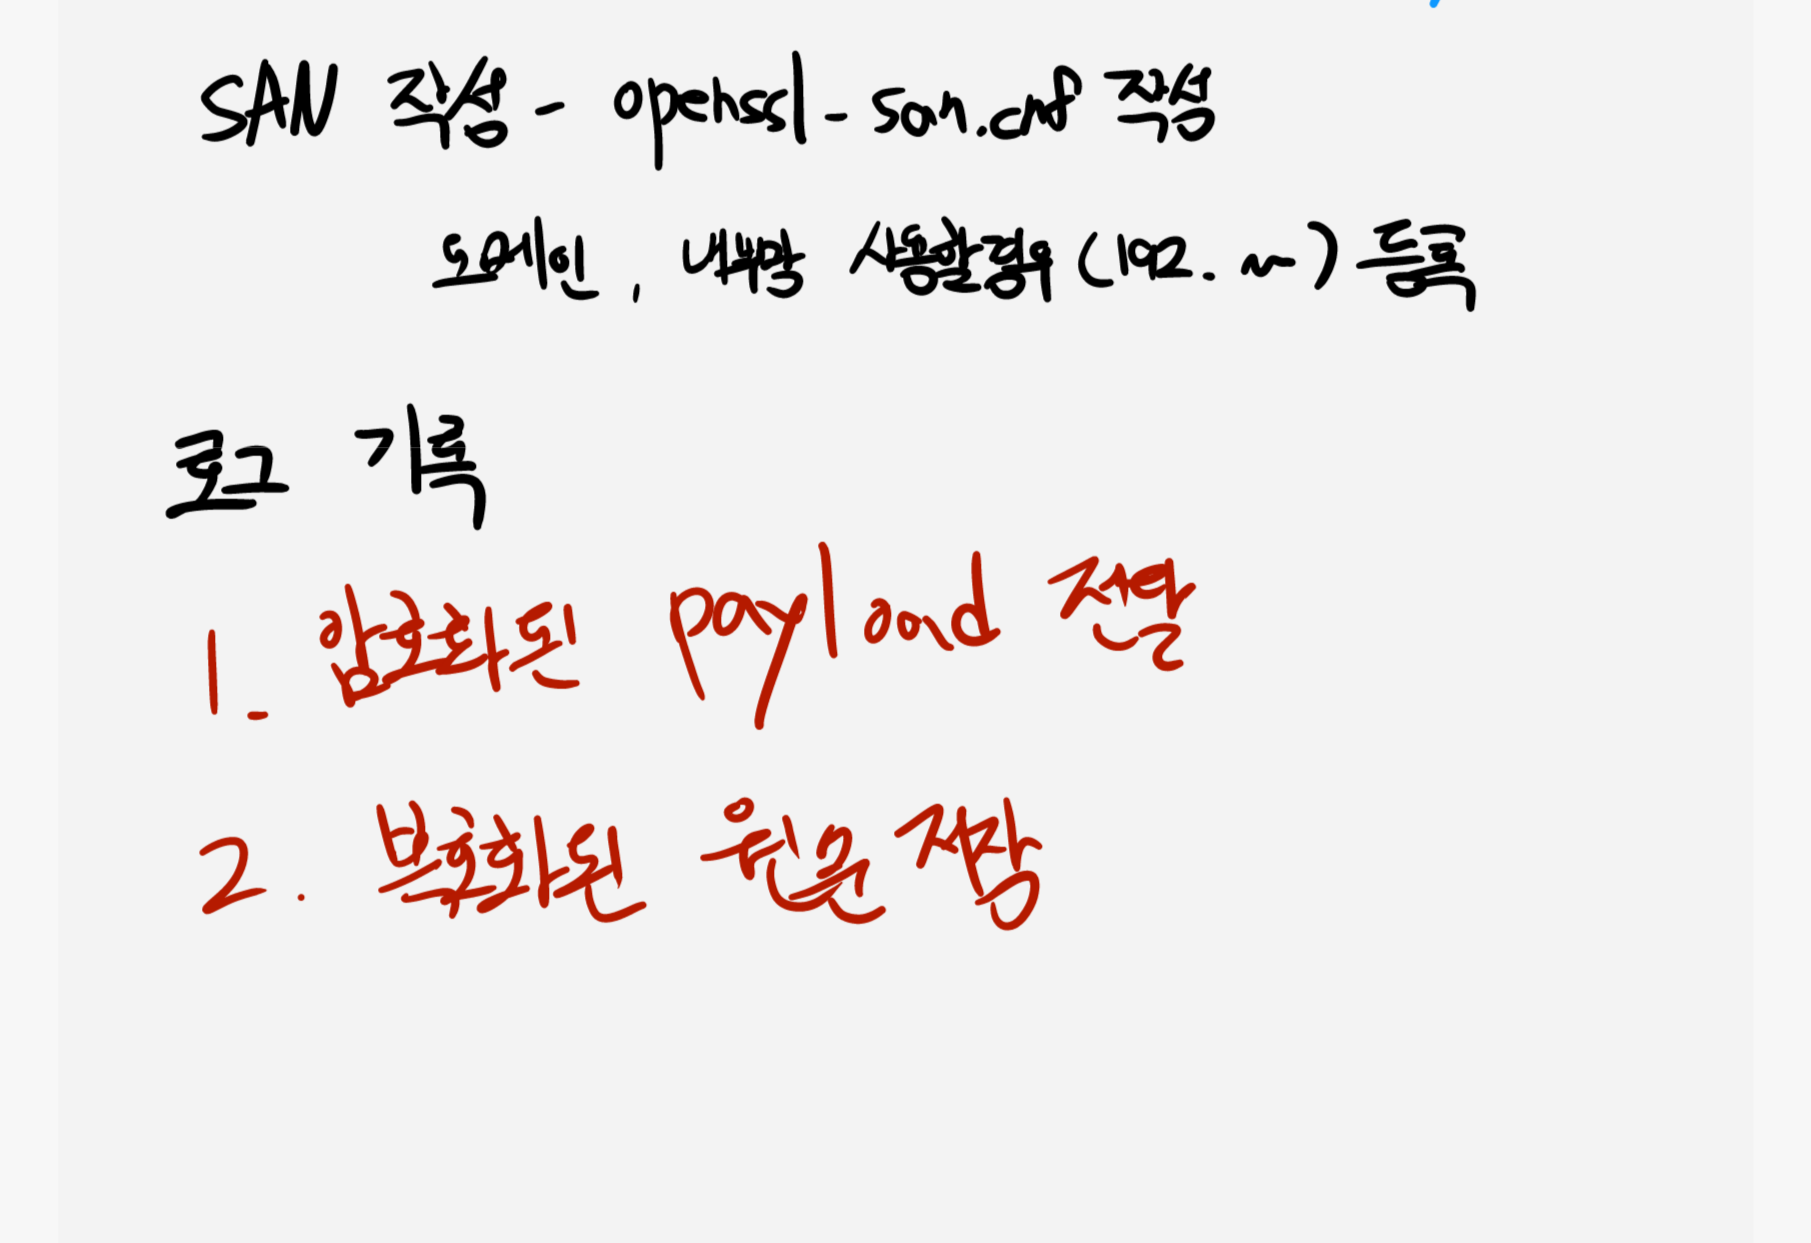 SAN 작성 - openssl-san.cnf 작성
도메인, 내부망 사용할 경우 (192. ~) 등록
로그 기록
1. 암호화된 payload 전달
2. 복호화된 원문 저장